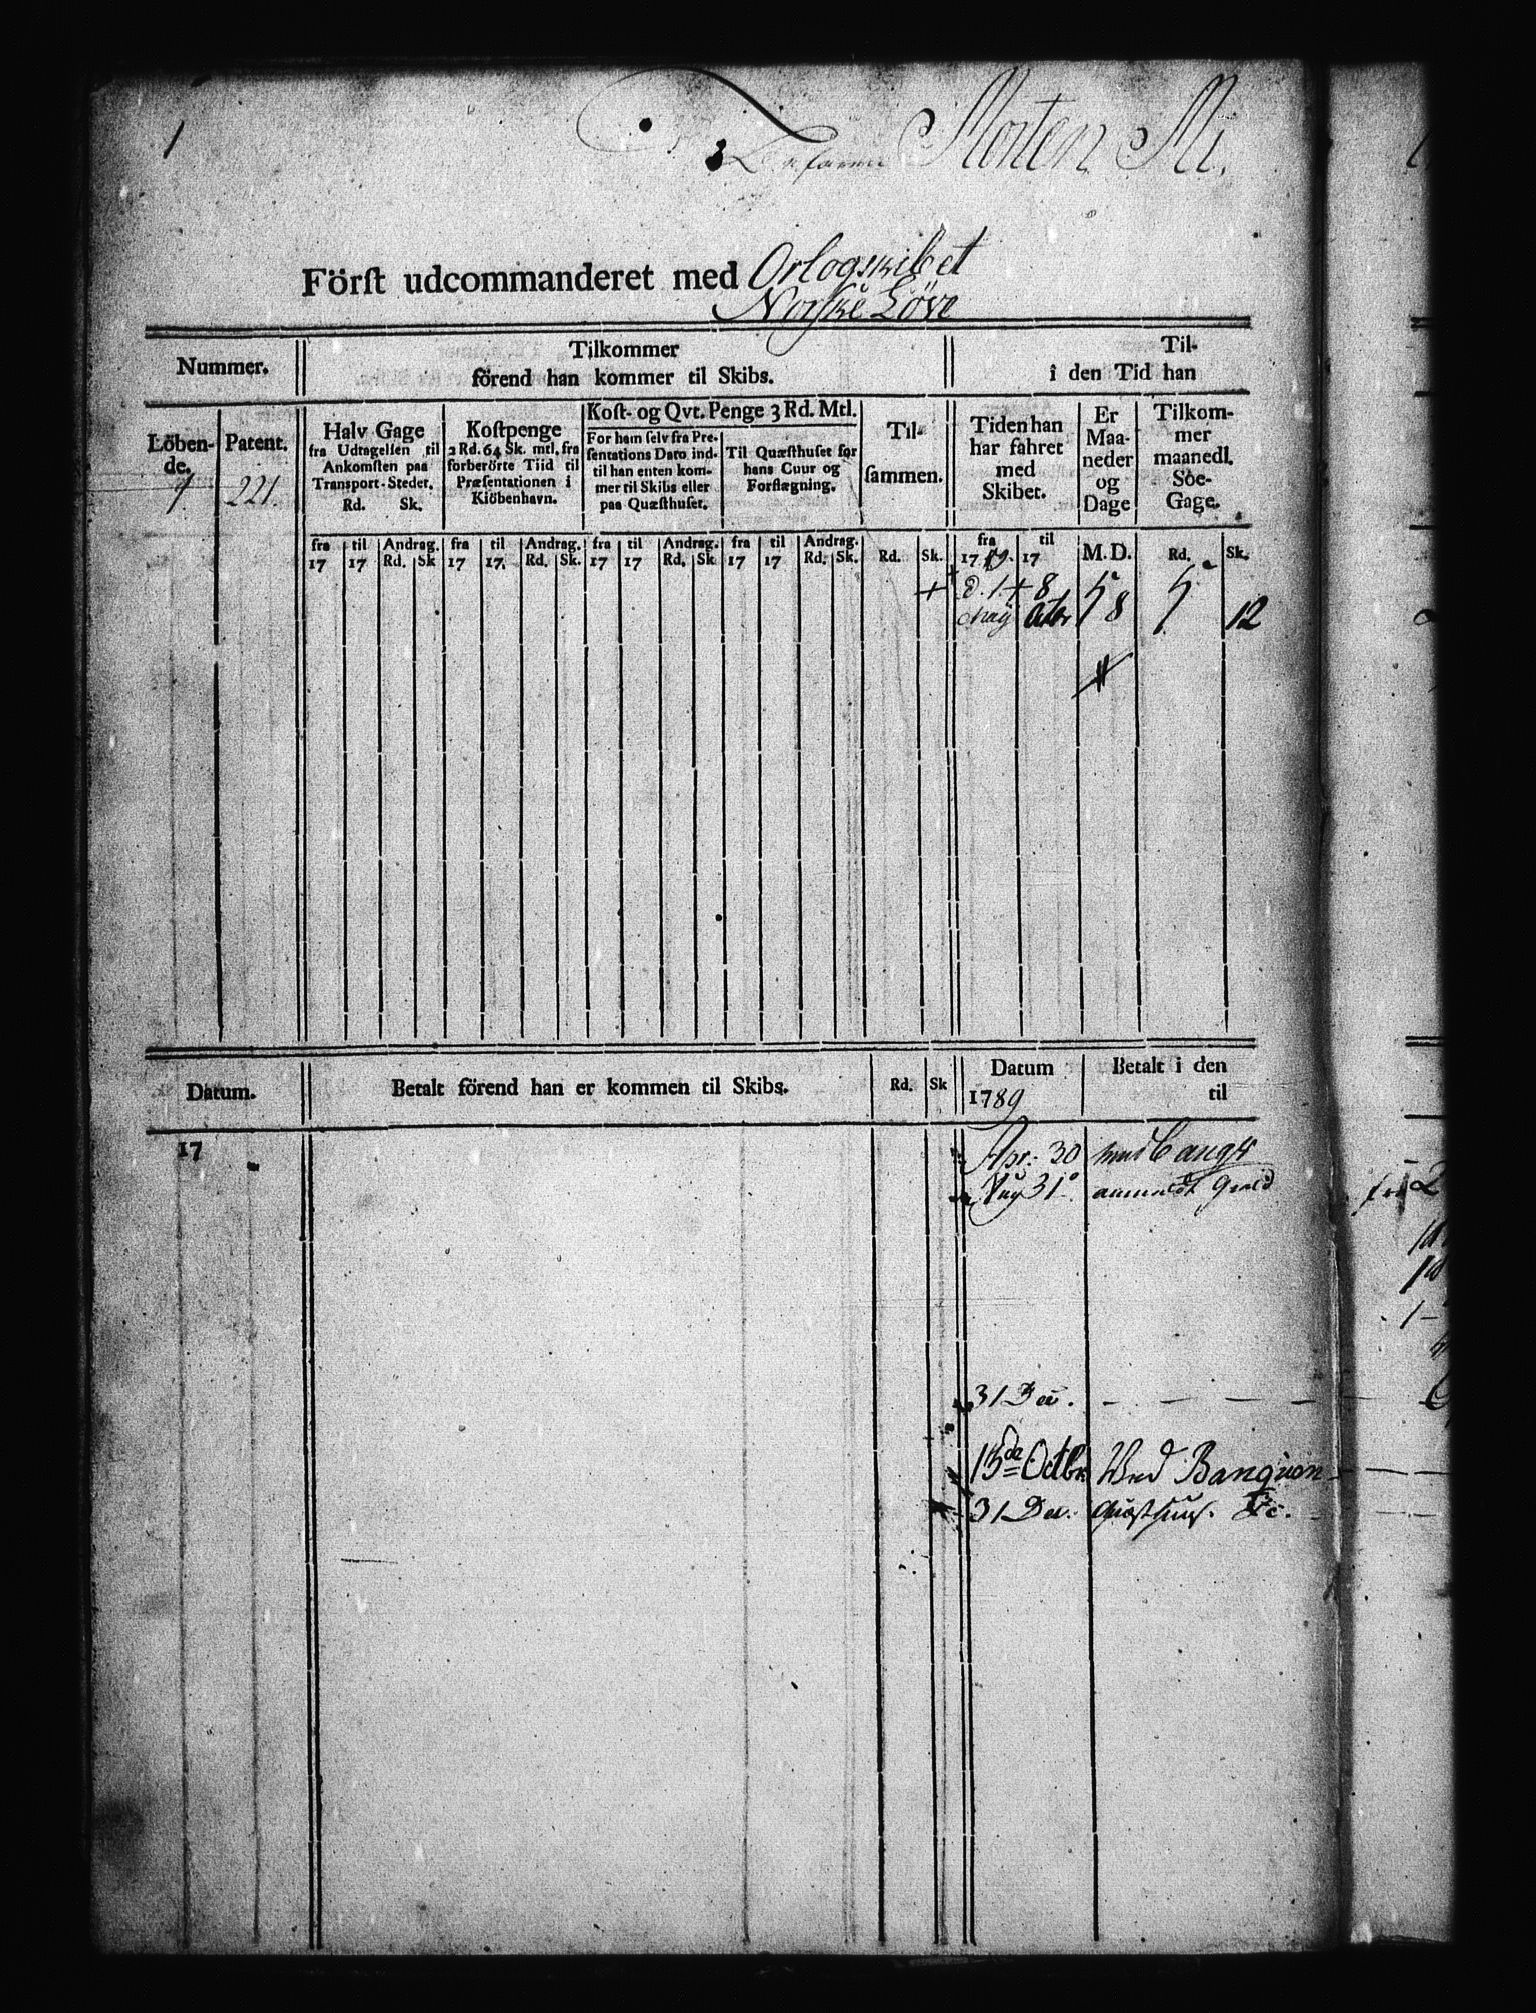 1
Morten Mi.
Förſt udcommanderet med Orlogskibet
Norſke Löve
Nummer.
Tilkommer
förend han kommer til Skibs.
Til-
i den Tid han
Löben-
de.
Patent.
Halv Gage
fra Udtagelſen til
Ankomſten paa
Transport-Stedet.
Rd. Sk.
Koſtpenge
2 Rd. 64 Sk. mtl. fra
forberörte Tiid til
Præſentationen i
Kiöbenhavn.
Koſt- og Qvt. Penge 3 Rd. Mtl.
For ham ſelv fra Pre-
ſentations Dato ind-
til han enten kom-
mer til Skibs eller
paa Quæſthuſet.
Til Quæſthuſet for
hans Cuur og
Forflægning.
Til-
ſammen.
Tiden han
har fahret
med
Skibet.
Er
Maa-
neder
og
Dage
Tilkom-
mer
maanedl.
Söe-
Gage.
1. 221.
fra til Andrag. fra til Andrag. fra til Andrag. fra til Andrag. Rd. Sk. fra til M.D. Rd. Sk.
17 17 Rd. Sk 17 17. Rd. Sk. 17 17 Rd. Sk 17 17 Rd. Sk. 1789. 17
+ d. 1 + 8 5 5
May Octbr 8 12
Datum. Betalt förend han er kommen til Skibs. Rd. Sk Datum Betalt i den
1789 til
17
Apr: 30
Aug 31
31 Dec. - - - -
13de Octbr Ved Banquen - - -
31 Dec. Quæsthuus. &c. - -